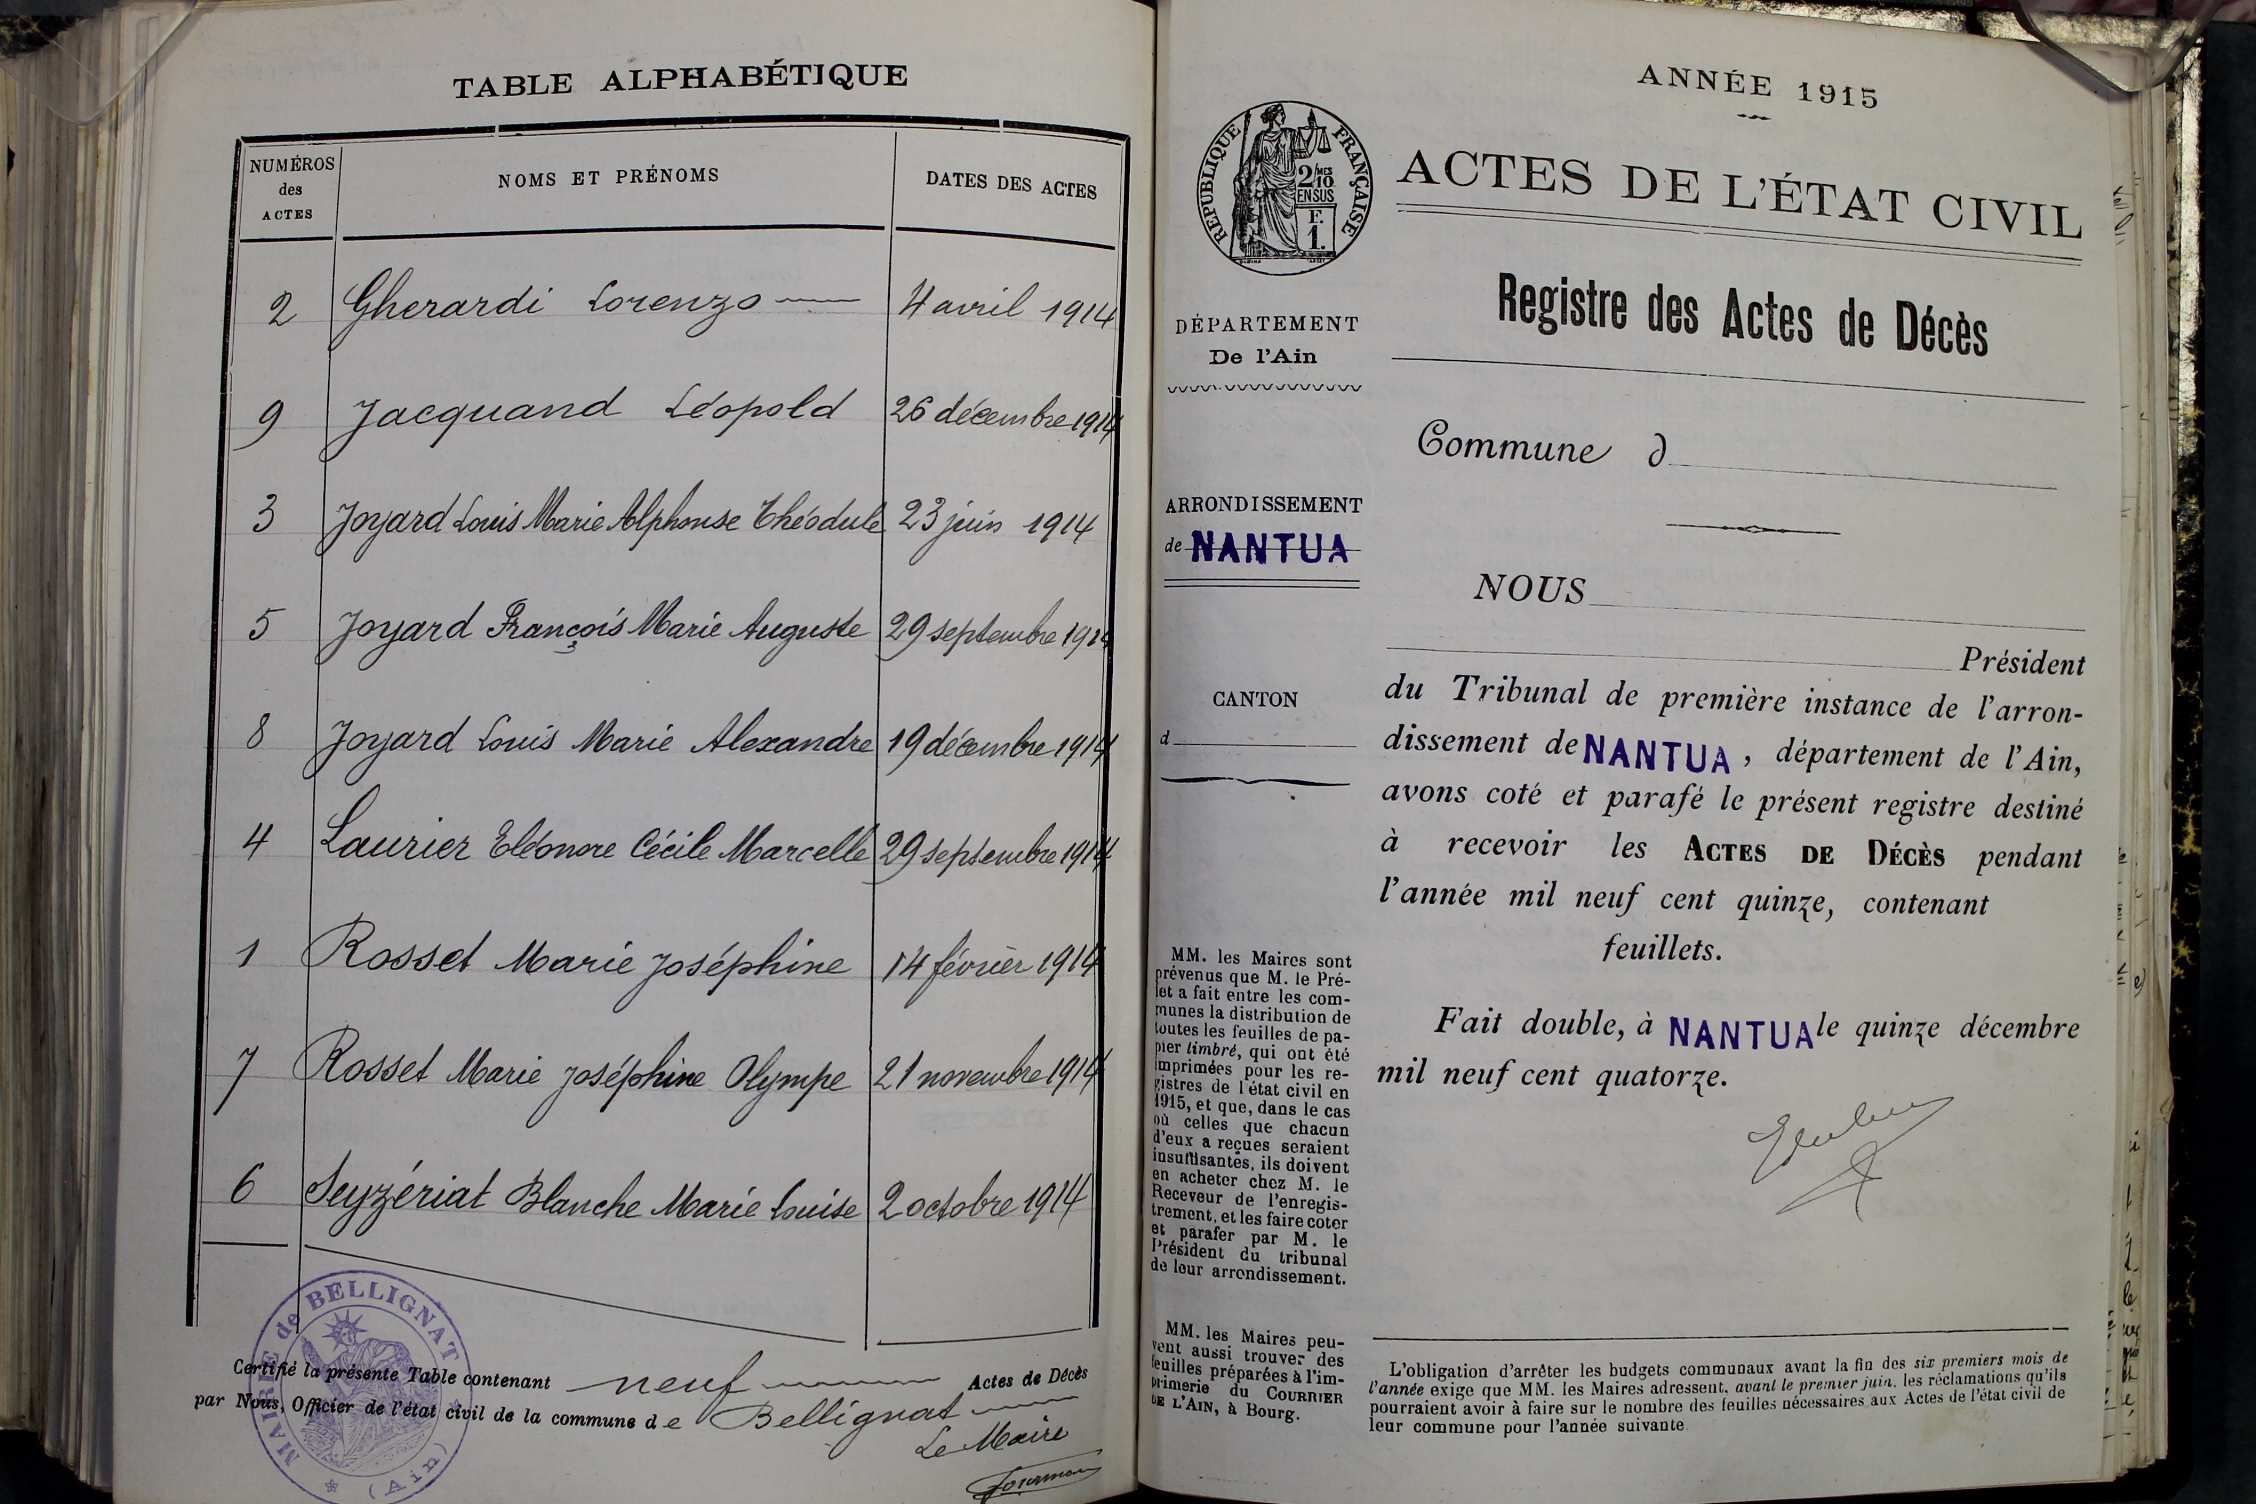 TABLE ALPHABÉTIQUE
NUMÉROS
des
ACTES
NOMS ET PRÉNOMS
DATES DES ACTES
2 Gherardi Lorenzo 4 avril 1914
9 Jacquand Léopold 26 décembre 1914
3 Joyard Louis Marie Alphonse Théodule 23 juin 1914
5 Joyard François Marie Auguste 29 septembre 1914
8 Joyard Louis Marie Alexandre 19 décembre 1914
4 Laurier Eléonore Cécile Marcelle 29 septembre 1914
1 Rosset Marie Joséphine 14 février 1914
7 Rosset Marie Joséphine Olympe 21 novembre 1914
6 Seyzériat Blanche Marie Louise 2 octobre 1914
MAIRIE de BELLIGNAT
(Ain)
Certifié la présente Table contenant neuf Actes de Décès
par Nous, Officier de l'état civil de la commune de Bellignat
Le Maire
ANNÉE 1915
RÉPUBLIQUE FRANÇAISE
2/10 MES
EN SUS
F.
1.
ACTES DE L'ÉTAT CIVIL
Registre des Actes de Décès
DÉPARTEMENT
De l'Ain
Commune d
ARRONDISSEMENT
de NANTUA
NOUS
Président
CANTON
d
du Tribunal de première instance de l'arron-
dissement de NANTUA, département de l'Ain,
avons coté et parafé le présent registre destiné
à recevoir les ACTES DE DÉCÈS pendant
l'année mil neuf cent quinze, contenant
feuillets.
Fait double, à NANTUA le quinze décembre
mil neuf cent quatorze.
MM. les Maires sont
prévenus que M. le Pré-
fet a fait entre les com-
munes la distribution de
toutes les feuilles de pa-
pier timbré, qui ont été
imprimées pour les re-
gistres de l'état civil en
1915, et que, dans le cas
où celles que chacun
d'eux a reçues seraient
insuffisantes, ils doivent
en acheter chez M. le
Receveur de l'enregis-
trement, et les faire coter
et parafer par M. le
Président du tribunal
de leur arrondissement.
MM. les Maires peu-
vent aussi trouver des
feuilles préparées à l'im-
primerie du COURRIER
DE L'AIN, à Bourg.
L'obligation d'arrêter les budgets communaux avant la fin des six premiers mois de
l'année exige que MM. les Maires adressent, avant le premier juin, les réclamations qu'ils
pourraient avoir à faire sur le nombre des feuilles nécessaires aux Actes de l'état civil de
leur commune pour l'année suivante.